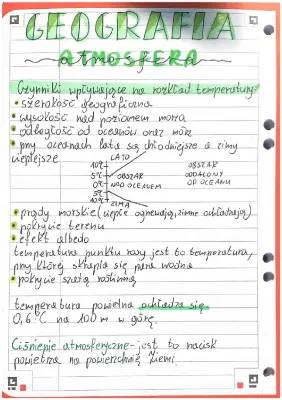 GEOGRAFIA
ATMOSFERA
atmosfera
Czynniki wpływające na rozkład temperatury:
• szerokość geograficzna
• wysokość nad poziomem morza
• odległość od oceanów oraz mórz
• przy oceanach lata są chłodniejsze a zimy
cieplejsze
LATO
10°
5°
0°
5°
10°
OBSZAR
NAD OCEANEM
OBSZAR
ODDALONY
OD OCEANU
ZIMA
• prądy morskie (ciepłe ogrzewają, zimne ochładzają)
• pokrycie terenu
• efekt albedo
temperatura punktu rosy jest to temperatura,
przy której skrapla się para wodna
• pokrycie szatą roślinną
temperatura powietrza ochładza się
0,6°C na 100 m w górę.
Ciśnienie atmosferyczne - jest to nacisk
powietrza na powierzchnię Ziemi.